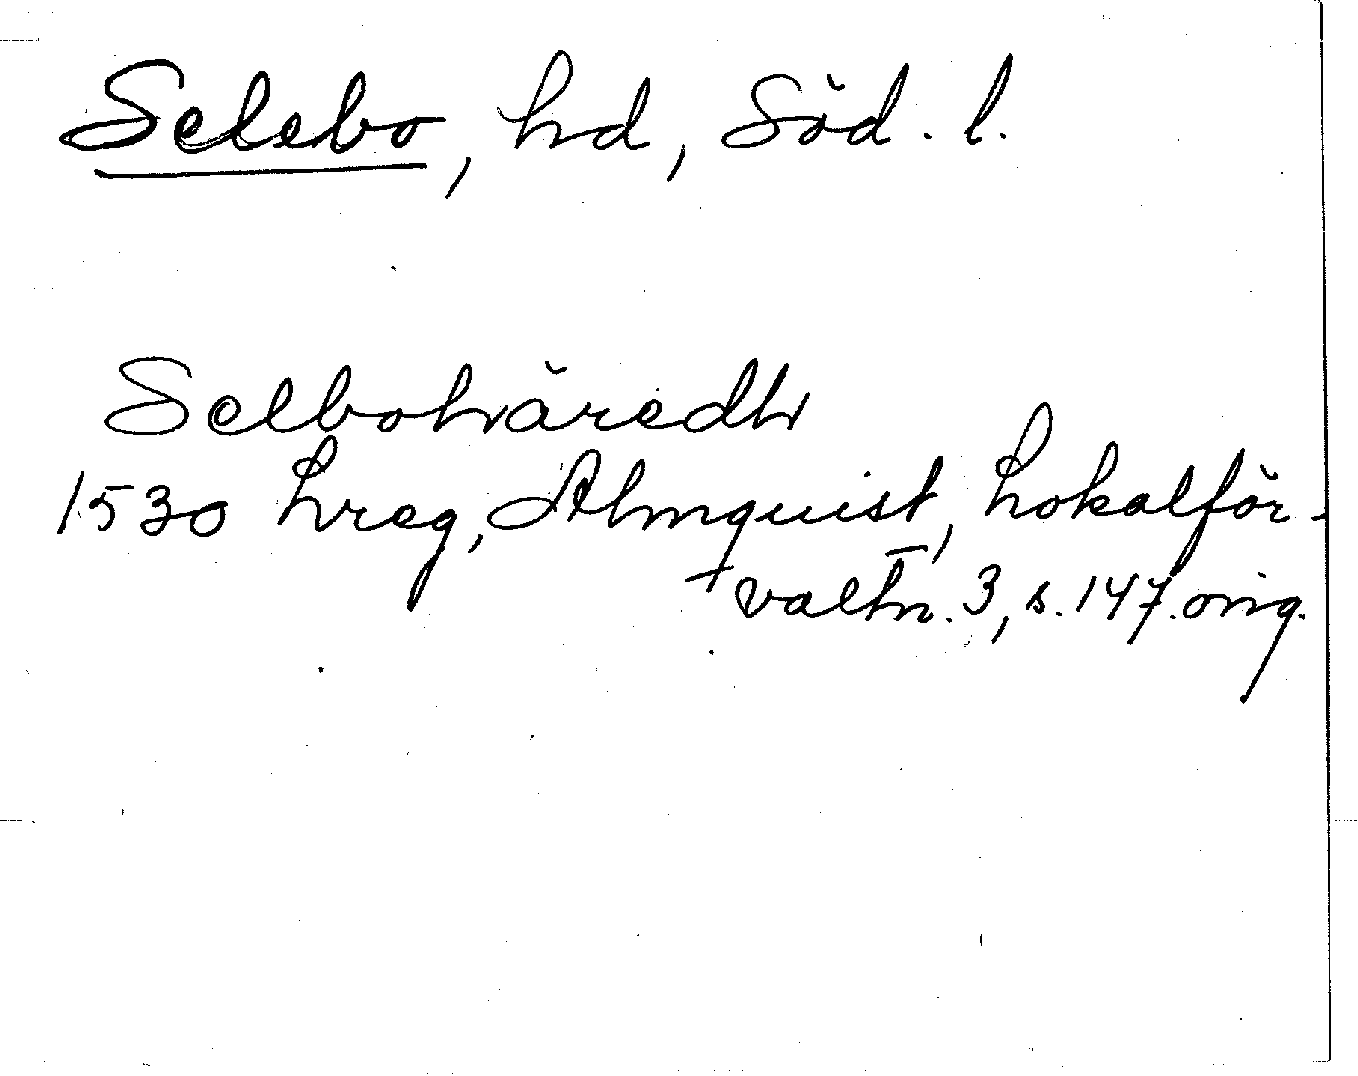 Selebo, hd, Söd. l.
Selbohäredh
1530 hreg, Almquist, Lokalför-
valtn. 3, s. 147. orig.